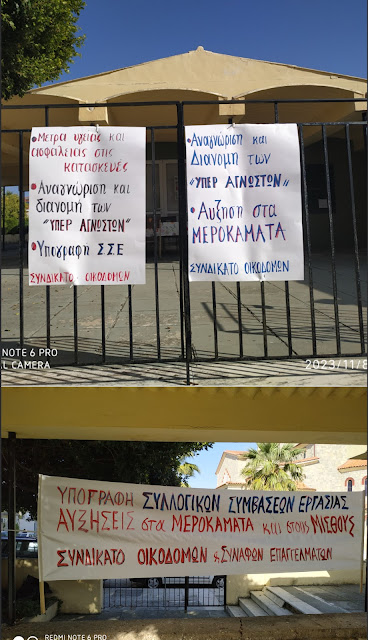 •Μέτρα υγείας και
ασφάλειας στις
κατασκευές
•Αναγνώριση και
διανομή των
"ΥΠΕΡ ΑΓΝΩΣΤΩΝ"
•Υπογραφή Σ.Σ.Ε
ΣΥΝΔΙΚΑΤΟ ΟΙΚΟΔΟΜΩΝ
•Αναγνώριση και
Διανομή των
"ΥΠΕΡ ΑΓΝΩΣΤΩΝ"
•Αυξηση στα
ΜΕΡΟΚΑΜΑΤΑ
ΣΥΝΔΙΚΑΤΟ ΟΙΚΟΔΟΜΩΝ
NOTE 6 PRO
AL CAMERA
2023/11/8
ΥΠΟΓΡΑΦΗ ΣΥΛΛΟΓΙΚΩΝ ΣΥΜΒΑΣΕΩΝ ΕΡΓΑΣΙΑΣ
ΑΥΞΗΣΕΙΣ στα ΜΕΡΟΚΑΜΑΤΑ και στους ΜΙΣΘΟΥΣ
ΣΥΝΔΙΚΑΤΟ ΟΙΚΟΔΟΜΩΝ & ΣΥΝΑΦΩΝ ΕΠΑΓΓΕΛΜΑΤΩΝ
REDMI NOTE 6 PRO